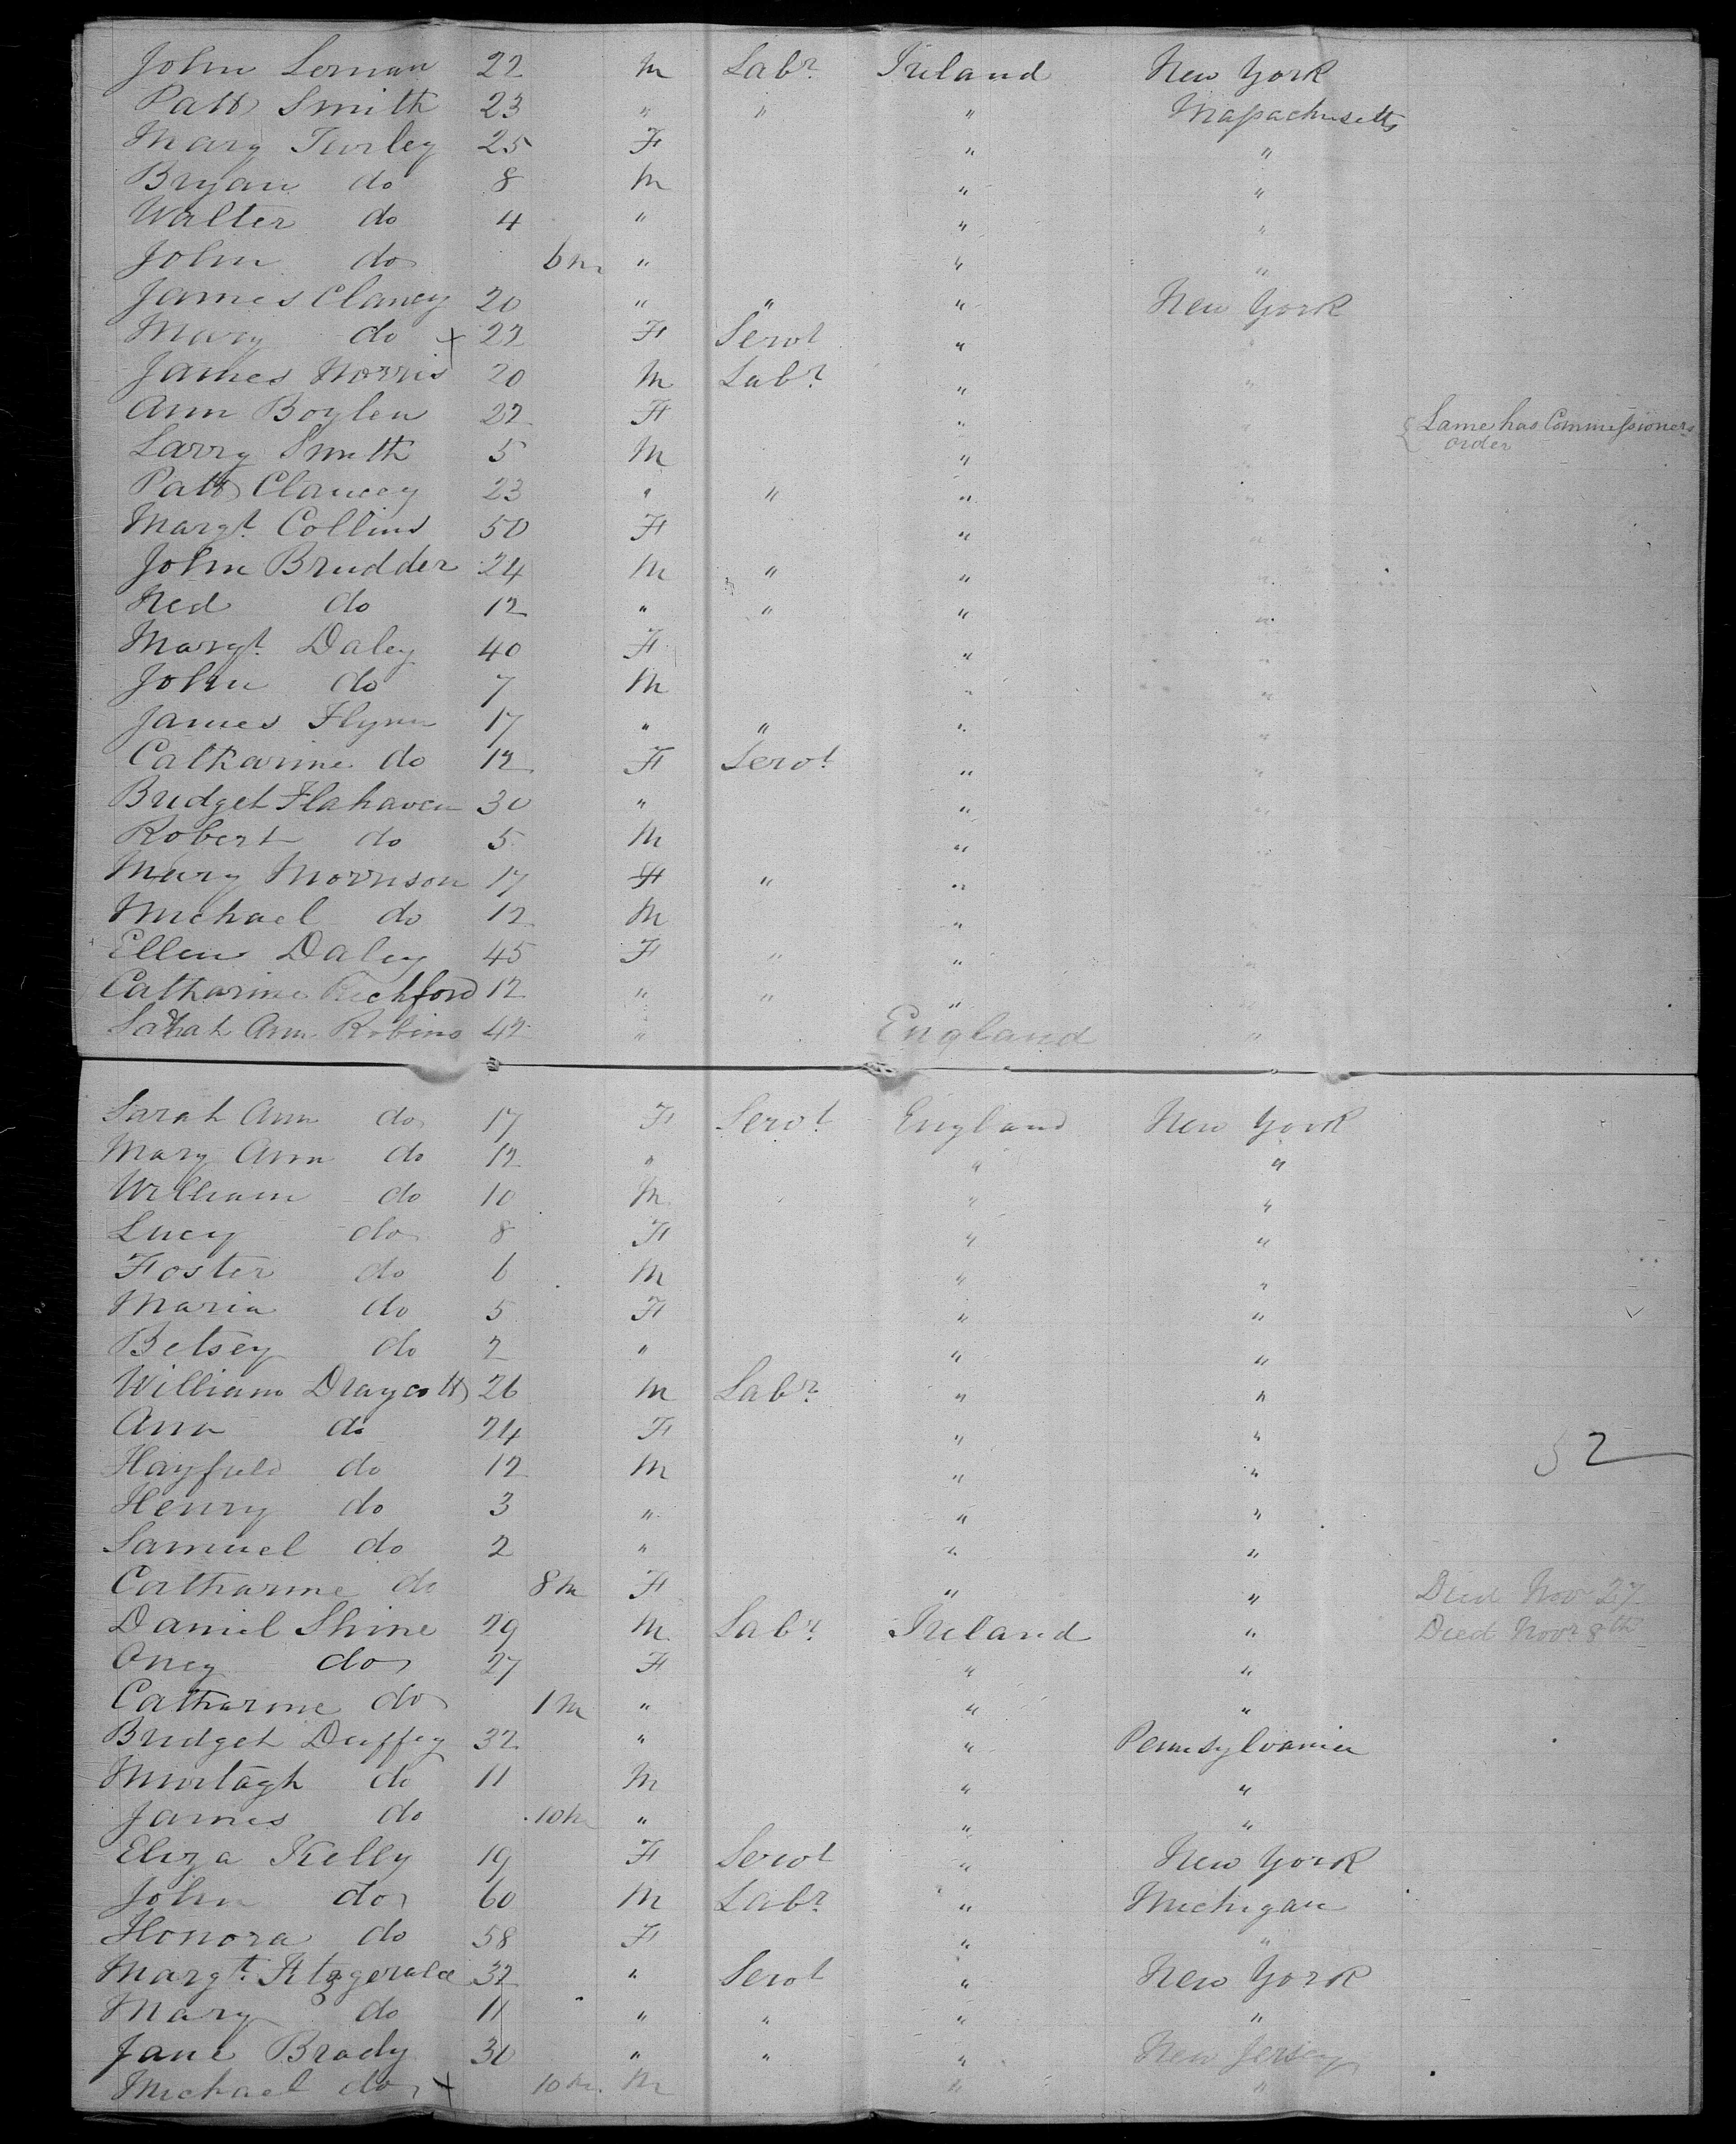 John Lernan 22 M Labr Ireland New York
Patt Smith 23 " " " Massachusetts
Mary Turley 25 F " "
Bryan do 8 M " "
Walter do 4 " " "
John do 6m " " "
James Clancy 20 " " " New York
Mary do x 22 F Servt " "
James Norris 20 M Labr " "
Ann Boylen 22 F " " { Lame has Commissioners
order
Larry Smith 5 M " "
Patt Clancey 23 " " " "
Margt Collins 50 F " "
John Brudder 24 M " " "
Ned do 12 " " " "
Margt Daley 40 F " "
John do 7 M " "
James Flynn 17 " " " "
Catharine do 12 F Servt " "
Bridget Flahaven 30 " " "
Robert do 5 M " "
Mary Morrison 17 F " " "
Michael do 12 M " "
Ellen Daley 45 F " " "
Catharine Richford 12 " " " "
Sarah Ann Robins 42 " England "
Sarah Ann do 17 F Servt England New York
Mary Ann do 12 " " "
William do 10 M " "
Lucy do 8 F " "
Foster do 6 M " "
Maria do 5 F " "
Betsey do 2 " " "
William Draycott 26 M Labr " "
Ann do 24 F " "
Hayfield do 12 M " " 52
Henry do 3 " " "
Samuel do 2 " " "
Catharine do 8m F " " Died Nov 27
Daniel Shine 29 M Labr Ireland " Died Novr 8th
Oney do 27 F " "
Catharine do 1m " " "
Bridget Duffey 32 " " Pennsylvania
Murtagh do 11 M " "
James do 10m " " "
Eliza Kelly 19 F Servt " New York
John do 60 M Labr " Michigan
Honora do 58 F " "
Margt Fitzgerald 32 " Servt " New York
Mary do 11 " " " "
Jane Brady 30 " " " New Jersey
Michael do x 10m M " "